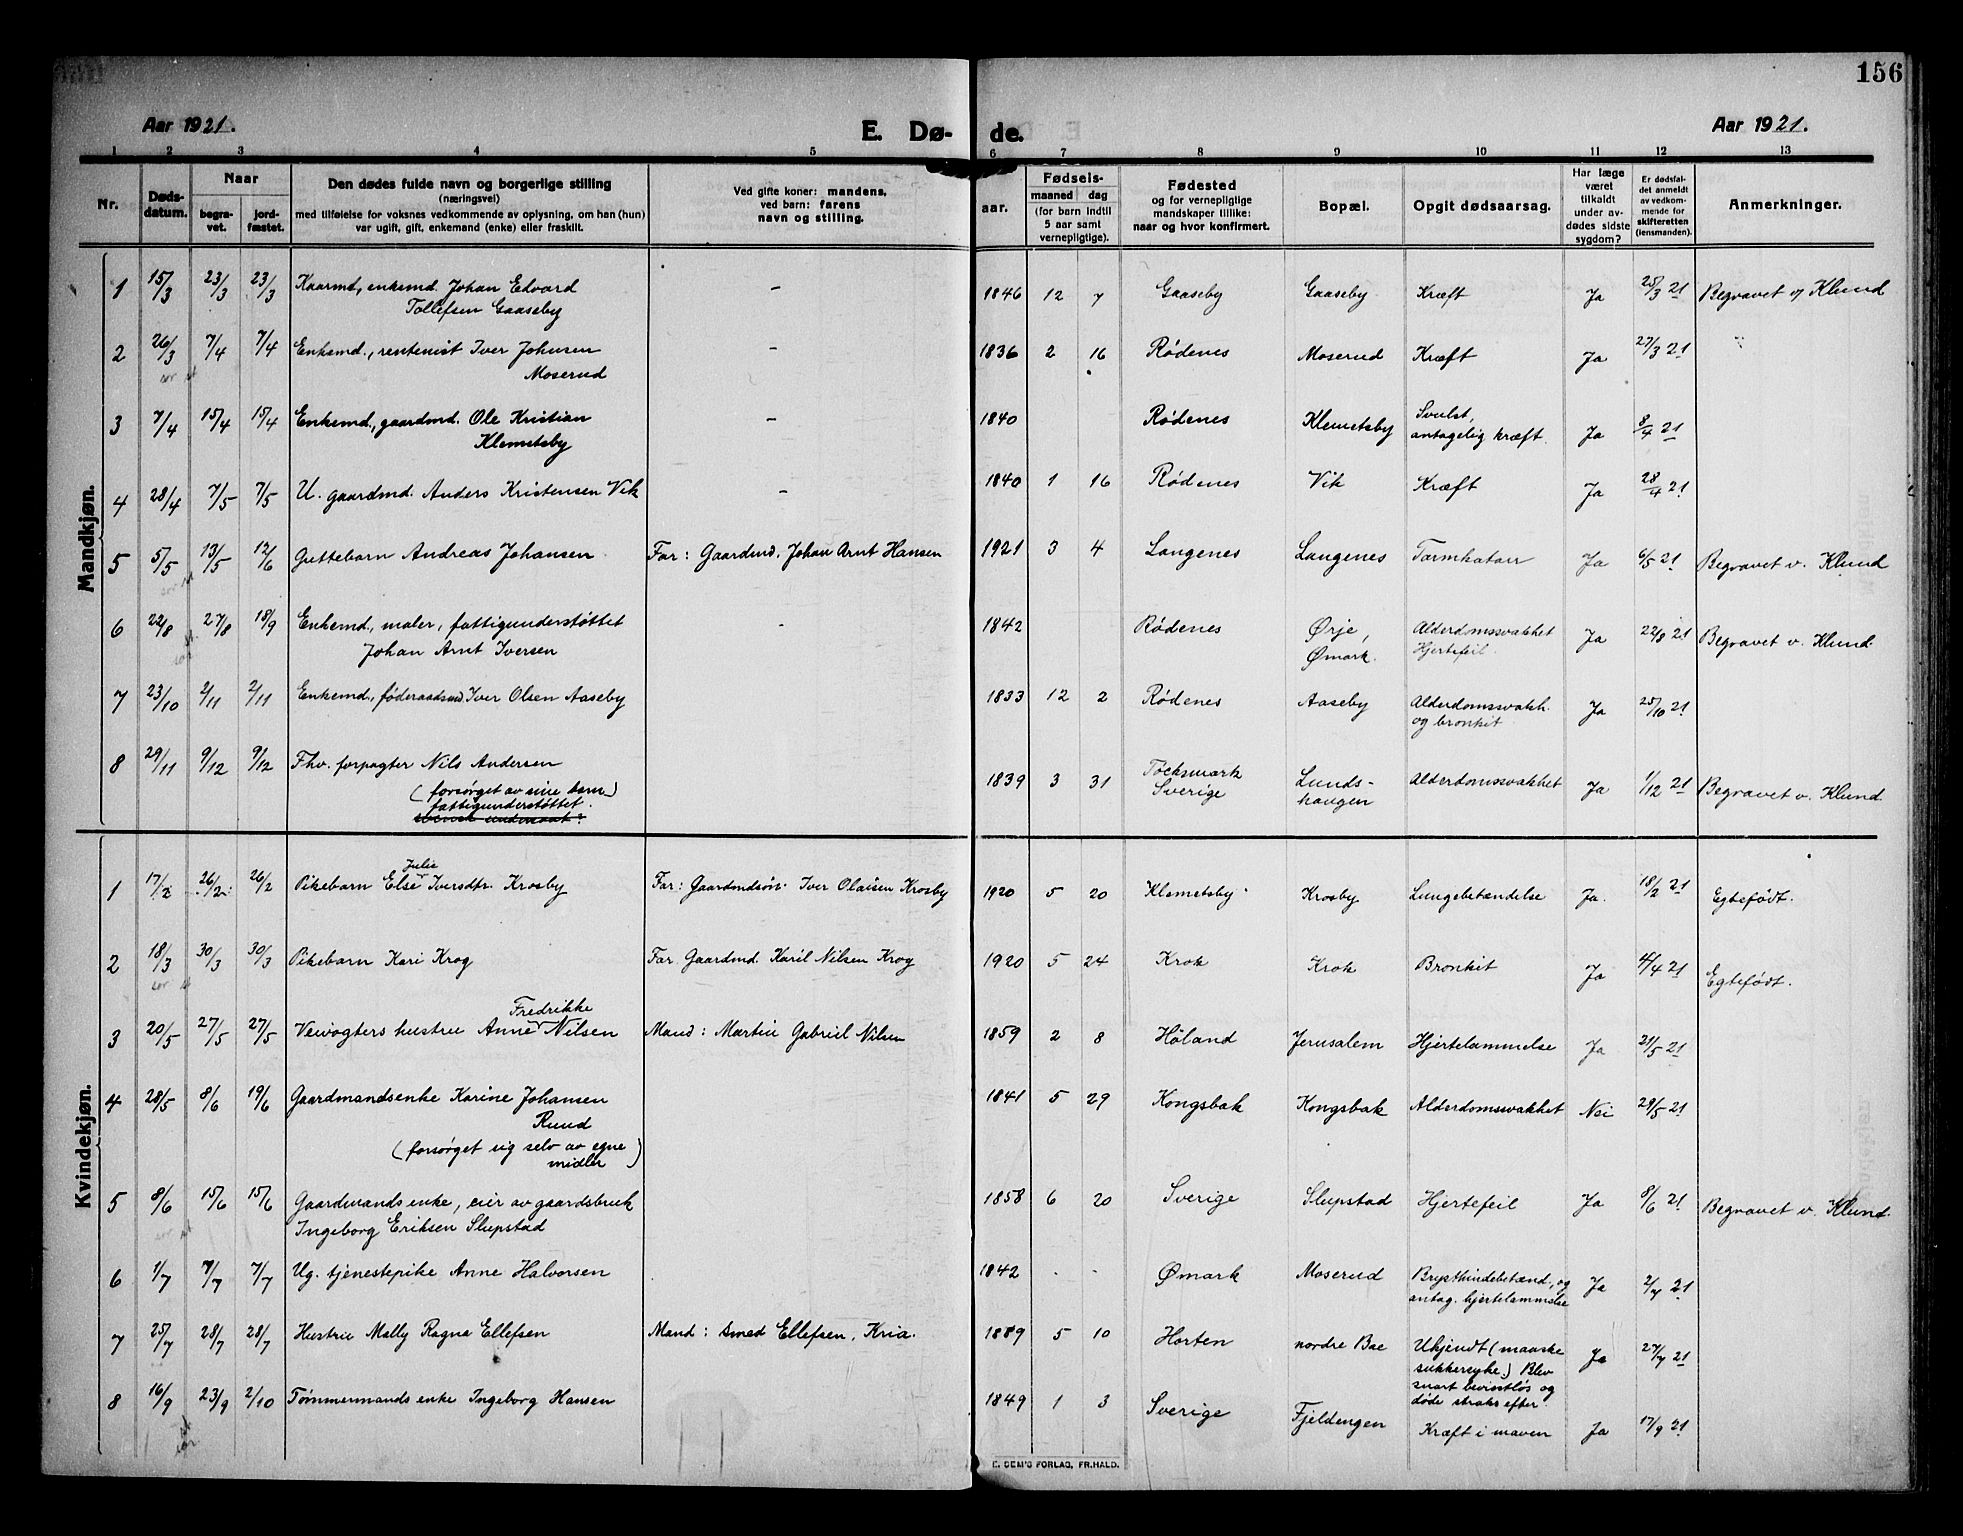 156
Aar 1921.
E. Dø- de.
Aar 1921.
1 2 3 4 5 6 7 8 9 10 11 12 13
Nr.
Døds-
datum.
Naar
begra-
vet.
jord-
fæstet.
Den dødes fulde navn og borgerlige stilling
(næringsvei)
med tilføielse for voksnes vedkommende av oplysning, om han (hun)
var ugift, gift, enkemand (enke) eller fraskilt.
Ved gifte koner: mandens,
ved barn: farens
navn og stilling.
Fødsels-
aar.
maaned dag
(for barn indtil
5 aar samt
vernepligtige).
Fødested
og for vernepligtige
mandskaper tillike:
naar og hvor konfirmert.
Bopæl.
Opgit dødsaarsag.
Har læge
været
tilkaldt
under av-
dødes sidste
sygdom?
Er dødsfal-
det anmeldt
av vedkom-
mende for
skifteretten
(lensmanden).
Anmerkninger.
Mandkjøn.
1 15/3 23/3 23/3 Kaarmd, enkemd. Johan Edvard - 1846 12 7 Gaaseby Gaaseby Kræft Ja 25/3 21 Begravet v Klund
Tollefsen Gaaseby
2 26/3 7/4 7/4 Enkemd., rentenist Iver Johnsen - 1836 2 16 Rødenes Moserud Kræft Ja 27/3 21 "
Moserud
3 7/4 15/4 15/4 Enkemd., gaardmd. Ole Kristian - 1840 Rødenes Klemetsby Svulst, Ja 8/4 21
Klemetsby antagelig kræft.
4 28/4 7/5 7/5 U. gaardmd. Anders Kristensen Vik - 1840 1 16 Rødenes Vik Kræft Ja 28/4 21
5 5/5 13/5 12/6 Guttebarn Andreas Johansen Far: Gaardmd. Johan Arnt Hansen 1921 3 4 Langenes Langenes Tarmkatarr Ja 6/5 21 Begravet v. Klund
6 22/8 27/8 18/9 Enkemd., maler, fattigunderstøttet - 1842 Rødenes Ørje, Alderdomssvakhet Ja 22/8 21 Begravet v. Klund
Johan Arnt Iversen Ømark. Hjertefeil.
7 23/10 2/11 2/11 Enkemd., føderaadsmd Iver Olsen Aaseby 1833 12 2 Rødenes Aaseby Alderdomssvakh. Ja 25/10 21
og bronkit
8 29/11 9/12 9/12 Fhv. forpagter Nils Andersen 1839 3 31 Töcksmark Lunds- Alderdomssvakhet Ja 1/12 21 Begravet v. Klund
(forsørget av sine barn) Sverige haugen
fattigunderstøttet.
Kvindekjøn.
1 17/2 26/2 26/2 Pikebarn Else Julie Iversdtr. Krosby Far: Gaardmdsøn Iver Olaisen Krosby 1920 5 20 Klemetsby Krosby Lungebetændelse Ja. 18/2 21 Egtefødt.
2 18/3 30/3 30/3 Pikebarn Kari Krog Far. Gaardmd. Karil Nilsen Krog 1920 5 24 Krok Krok Bronkit Ja 4/4 21 Egtefødt.
3 20/5 27/5 27/5 Veivogters hustru Anne Fredrikke Nilsen Mand: Martin Gabriel Nilsen 1859 2 8 Høland Jerusalem Hjertelammelse Ja 21/5 21
4 28/5 8/6 19/6 Gaardmandsenke Karine Johansen 1841 5 29 Kongsbak Kongsbak Alderdomssvakhet Nei 29/5 21
Ruud
(forsørget sig selv av egne
midler)
5 8/6 15/6 15/6 Gaardmands enke, eier av gaardsbruk 1858 6 20 Sverige Slupstad Hjertefeil Ja 8/6 21 Begravet v. Klund.
Ingeborg Eriksen Slupstad
6 1/7 7/7 7/7 Ug. tjenestepike Anne Halvorsen 1842 - - Ømark Moserud Brysthindebetænd, og Ja 2/7 21
antag. hjertelammelse
7 25/7 28/7 28/7 Hustru Mally Ragna Ellefsen Mand: Smed Ellefsen, Kria. 1889 5 10 Horten nordre Boe Ukjendt (maaske Ja 27/7 21
sukkersyke.) Blev
snart bevisstløs og
døde straks efter.
8 16/9 23/9 2/10 Tømmermands enke Ingeborg Hansen 1849 1 3 Sverige Fjeldengen Kræft i maven Ja 17/9 21
E. SEM'S FORLAG, FR.HALD.